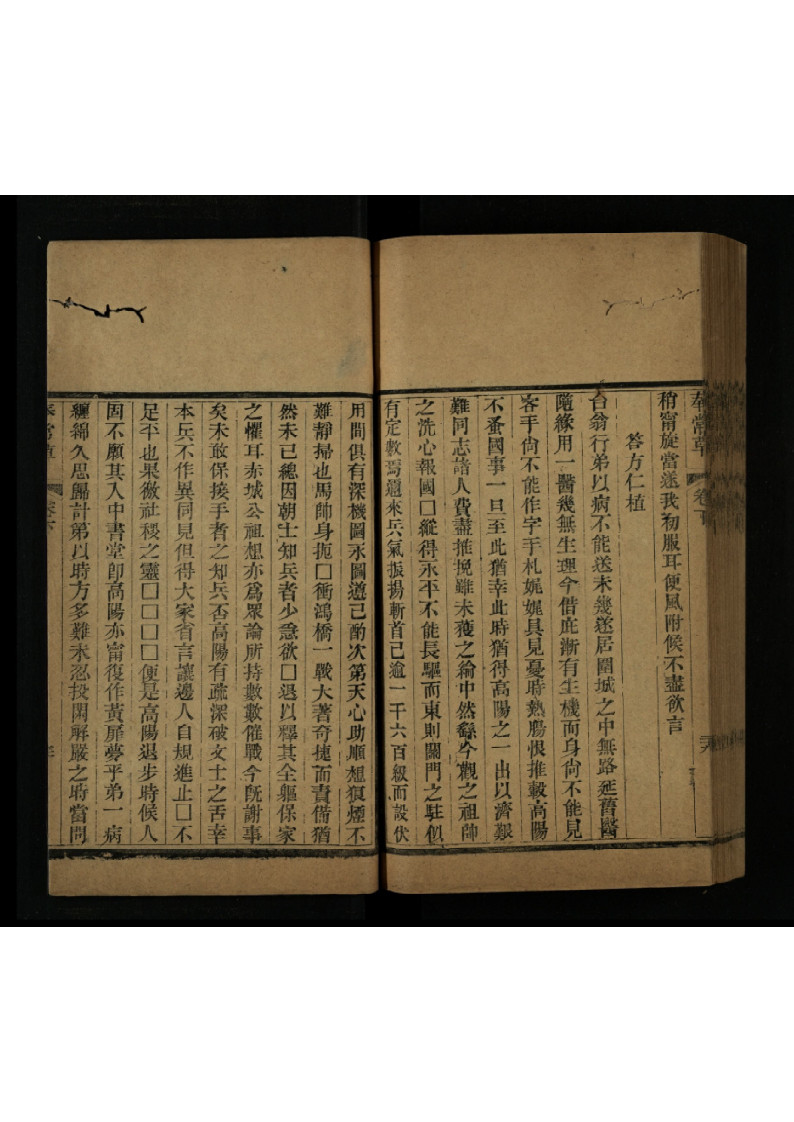 奉常草 卷
稍甯旋當遂我初服耳便風附候不盡欲言
答方仁植
台翁行弟以病不能送未幾遂居圍城之中無路延舊醫
隨緣用一醫幾無生理今借庇漸有生機而身尙不能見
客手尙不能作字手札娓娓具見憂時熱膓恨推轂高陽
不蚤國事一旦至此猶幸此時猶得高陽之一出以濟艱
難同志諸人費盡推挽雖未獲之綸中然繇今觀之祖帥
之洗心報國□縱得永平不能長驅而東則關門之駐似
有定數焉邇來兵氣振揚斬首已逾一千六百級而設伏
用間俱有深機圖永圖遵已酌次第天心助順想狼煙不
難靜掃也馬帥身扼□衝鴻橋一戰大著奇捷而責備猶
然未已總因朝士知兵者少急欲□退以釋其全軀保家
之懼耳赤城公祖想亦爲眾論所持數數催戰今旣謝事
矣未敢保接手者之知兵否高陽有疏深破文士之舌幸
本兵不作異同見但得大家省言讓邊人自規進止□不
足平也果徼社稷之靈□□□□便是高陽退步時候人
因不願其入中書堂卽高陽亦甯復作黃扉夢乎弟一病
纏綿久思歸計第以時方多難未忍投閑解嚴之時當問
奉常草